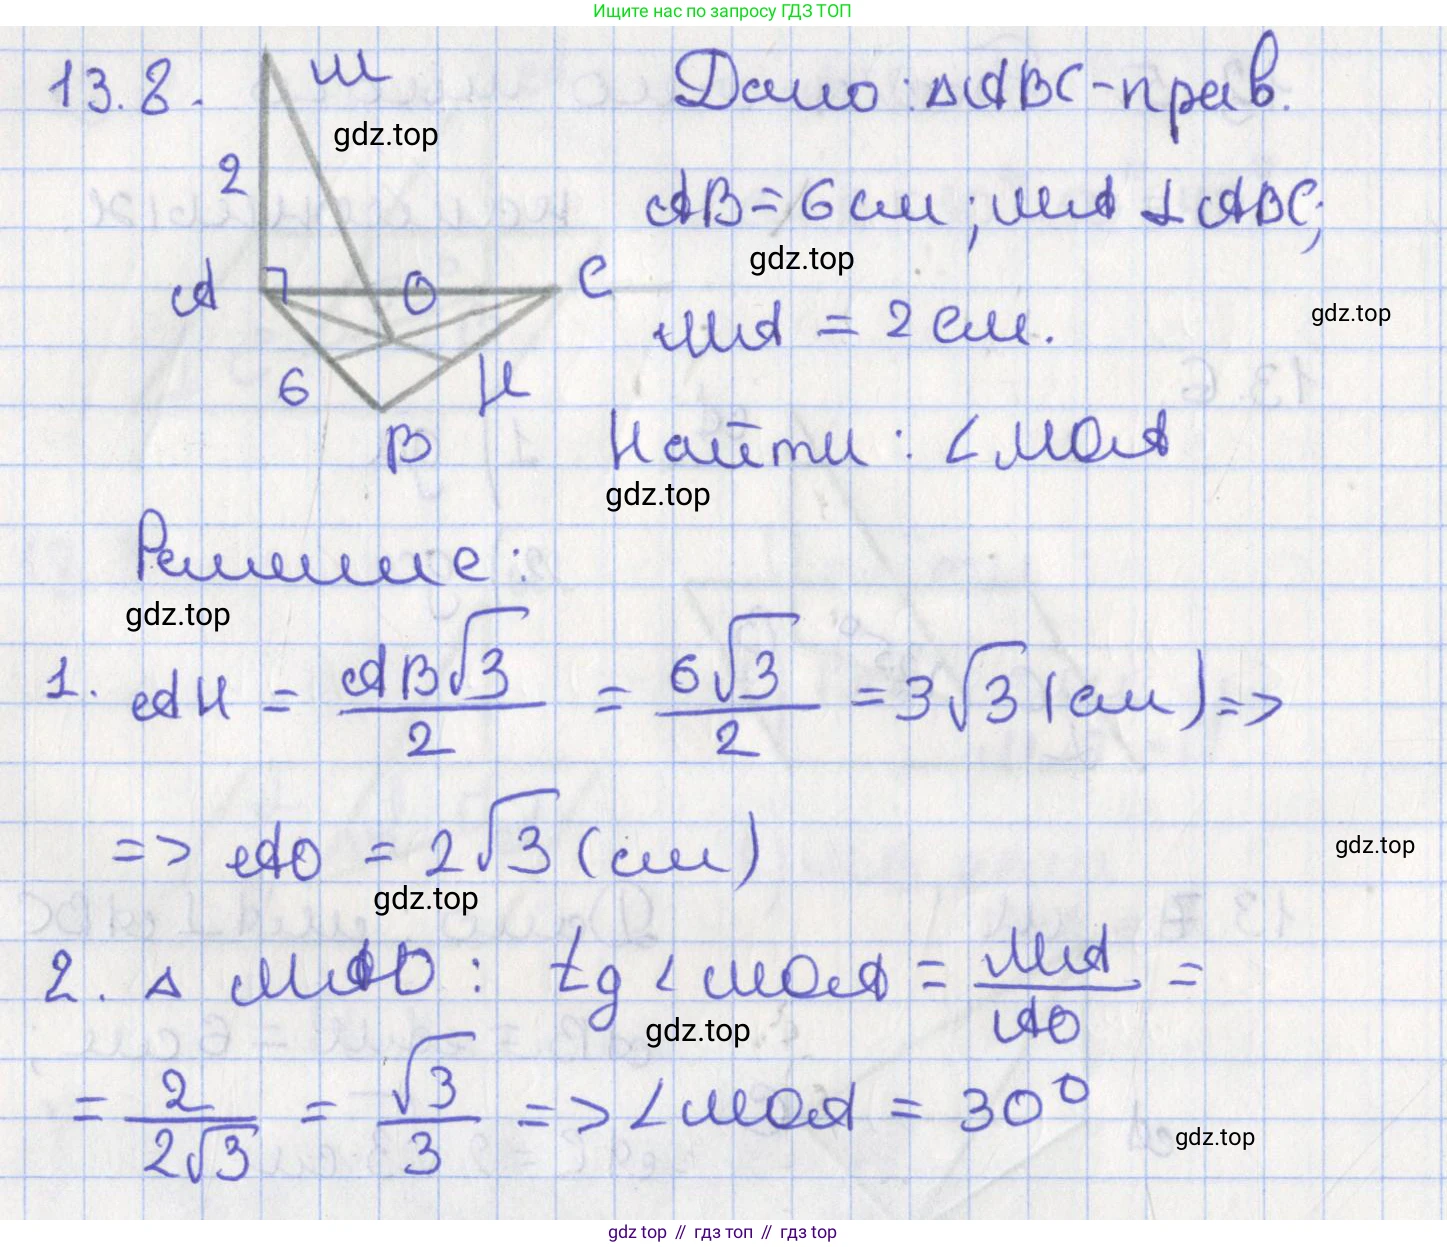 Ищите нас по запросу ГДЗ ТОП
13.8.
М
Дано: △ABC - прав.
gdz.top
2
AB = 6 см; MA ⊥ ABC;
gdz.top
A
O
C
MA = 2 см.
gdz.top
6
H
B
Найти: ∠MOA
gdz.top
Решение:
gdz.top
1. AH = AB√3/2 = 6√3/2 = 3√3 (см) =>
=> AO = 2√3 (см)
gdz.top
gdz.top
2. △ MAO: tg ∠MOA = MA/AO =
gdz.top
= 2/2√3 = √3/3 => ∠MOA = 30°
gdz.top
gdz top // гдз топ // гдз top